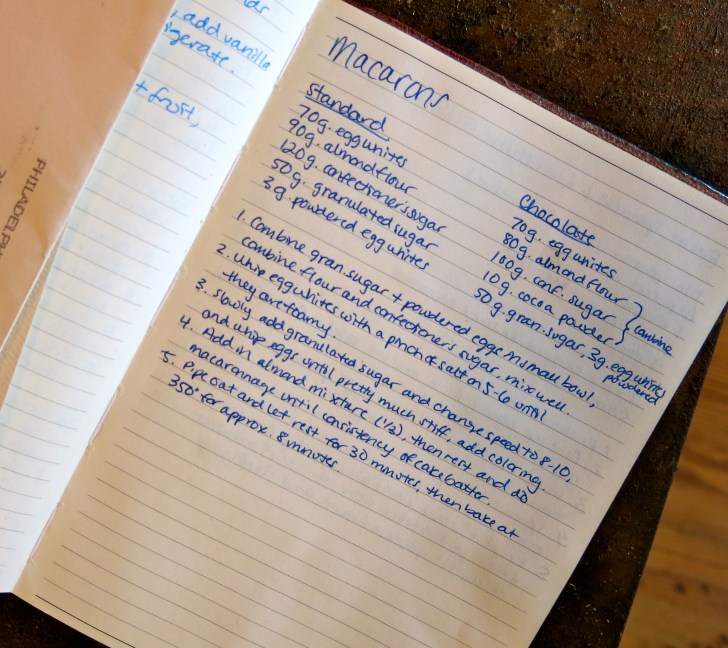 , add vanilla
gerate.
+ frost,
PHILADELP
Macarons
Standard
70g. egg whites
90g. almond flour
120g. confectioner's sugar
50g. granulated sugar
3g. powdered egg whites
Chocolate
70g. egg whites
80g. almond flour
100g. conf. sugar
10g. cocoa powder
combine
50g. gran. sugar, 3g. egg whites
powdered
1. Combine gran. sugar + powdered eggs in small bowl,
combine flour and confectioner's sugar, mix well.
2. Whip egg whites with a pinch of salt on 5-6 until
they are foamy.
3. Slowly add granulated sugar and change speed to 8-10,
and whip eggs until pretty much stiff. add coloring.
4. Add in almond mixture (1/2), then rest and do
macaronnage until consistency of cake batter.
5. Pipe oat and let rest for 30 minutes, then bake at
350° for approx. 8 minutes.